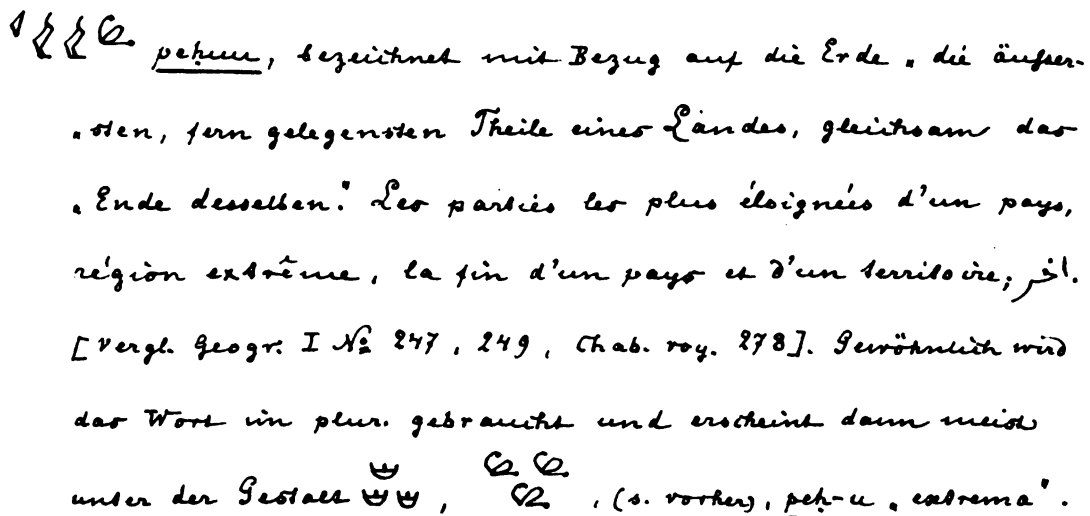 peḥuu, bezeichnet mit Bezug auf die Erde „die äußer-
„sten, fern gelegensten Theile eines Landes, gleichsam das
„Ende desselben." Les parties les plus éloignées d'un pays,
région extrême, la fin d'un pays et d'un territoire; اخر.
[Vergl. Geogr. I No 247, 249, Chab. roy. 278]. Gewöhnlich wird
das Wort im plur. gebraucht und erscheint dann meist
unter der Gestalt , , (s. vorher), peḥ-u „extrema".